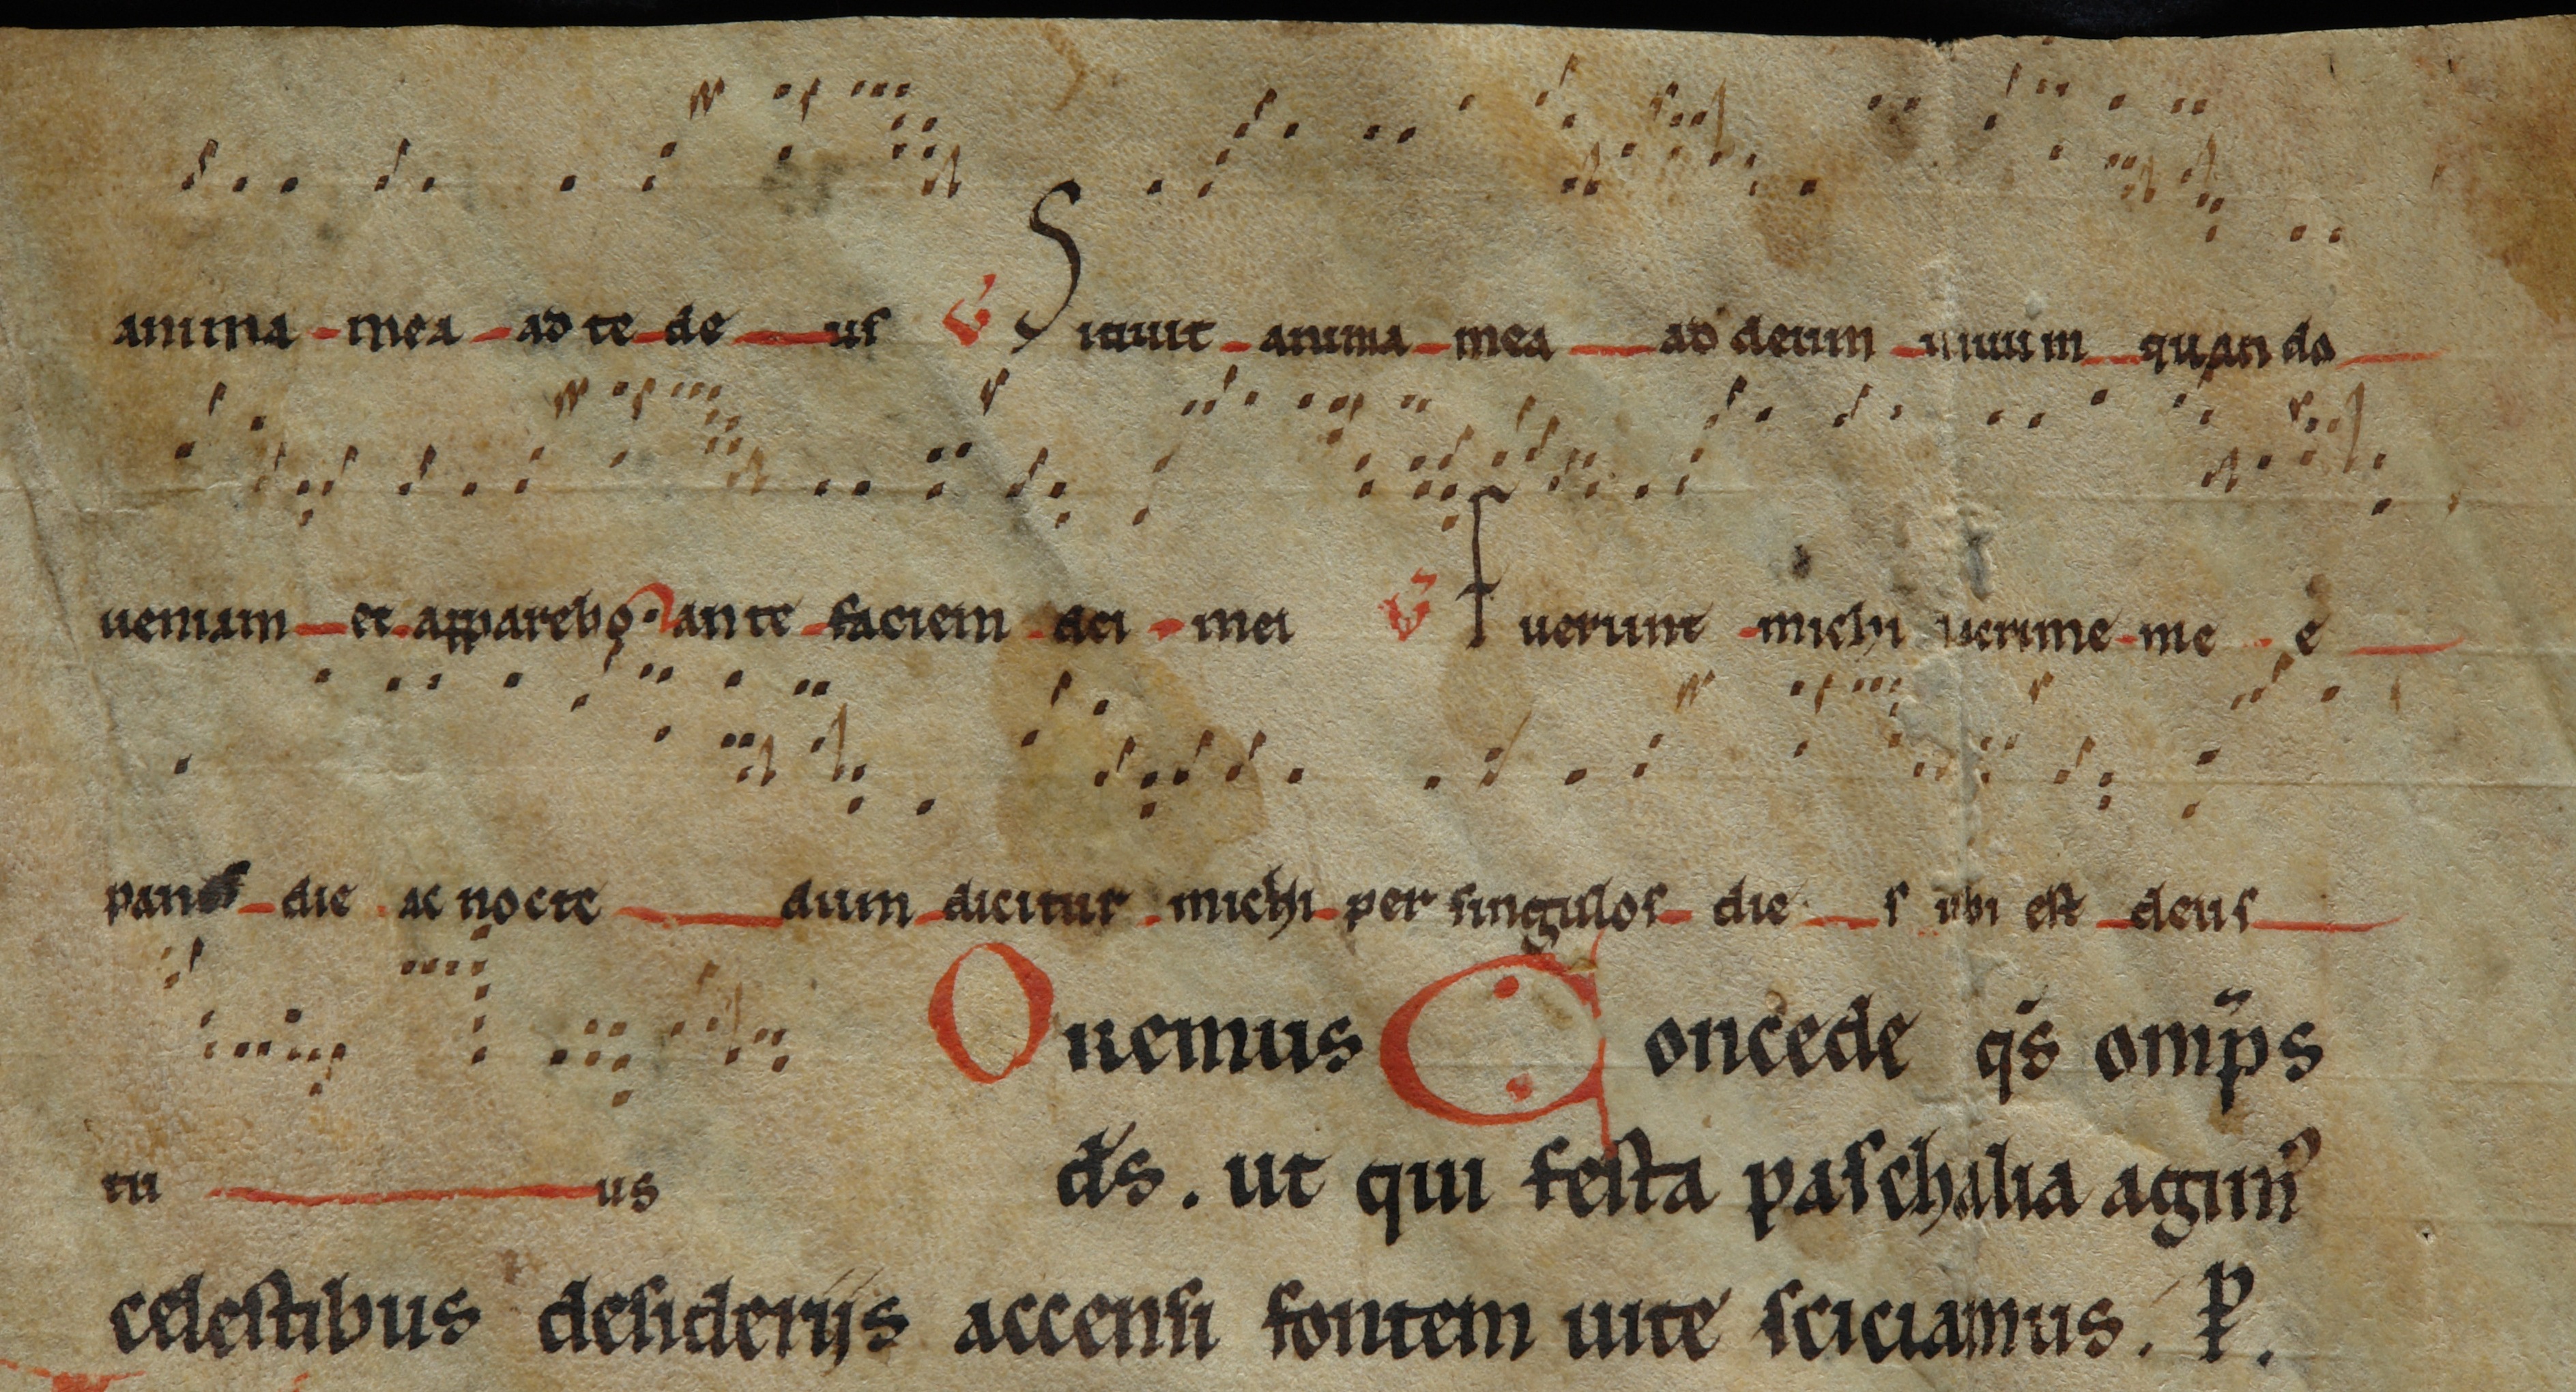 anima mea ad te de us ℣ Sitiuit anima mea ad deum uiuum quando
ueniam et apparebo ante faciem dei mei ℣ fuerunt michi lacrime me e
panis die ac nocte dum dicitur michi per singulos die s ubi est deus
tu us
Oremus Concede qs̄ omp̄s
d̄s. ut qui festa paschalia agim᷒
celestibus desiderijs accensi fontem uite sciciamus. P.